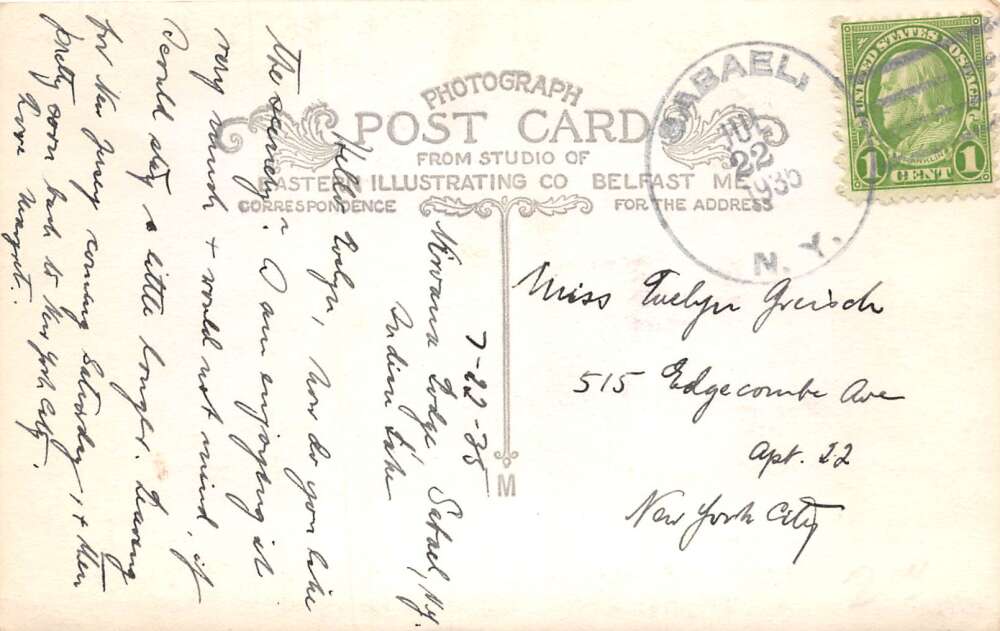 PHOTOGRAPH
POST CARD
FROM STUDIO OF
EASTERN ILLUSTRATING CO BELFAST ME
CORRESPONDENCE
FOR THE ADDRESS
M
SABAEL
JUL
22
1935
N. Y.
UNITED STATES POSTAGE
FRANKLIN
1 CENT 1
7-22-35
Lodge, Sabael, N.Y.
Indian Lake
Hello Evelyn, How do you like
the scenery? I am enjoying it
very much + would not mind, if
I could stay a little longer. Leaving
for New Jersey coming Saturday, + then
pretty soon back to New York City.
Love Margot.
Miss Evelyn Greisch
515 Edgecombe Ave
Apt. 22
New York City